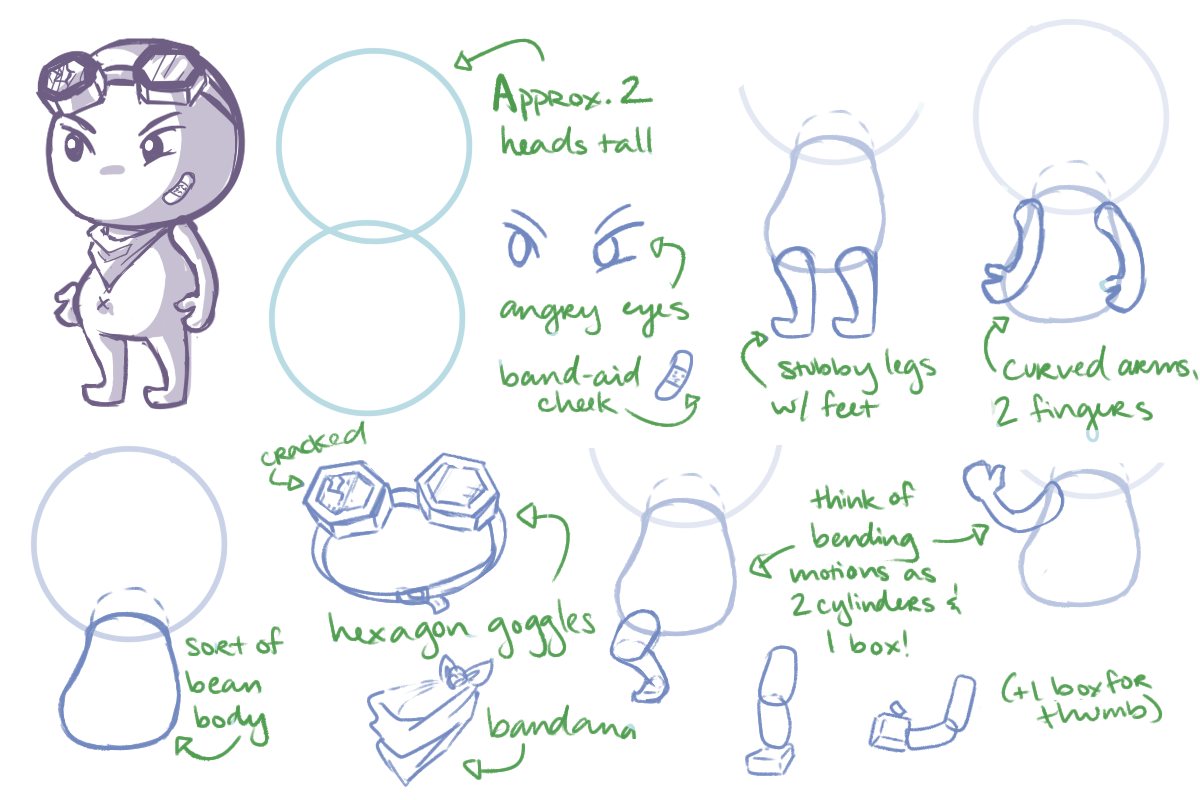 Approx. 2
heads tall
angry eyes
band-aid
cheek
stubby legs
w/ feet
curved arms,
2 fingers
sort of
bean
body
cracked
hexagon goggles
bandana
think of
bending
motions as
2 cylinders &
1 box!
(+1 box for
thumb)